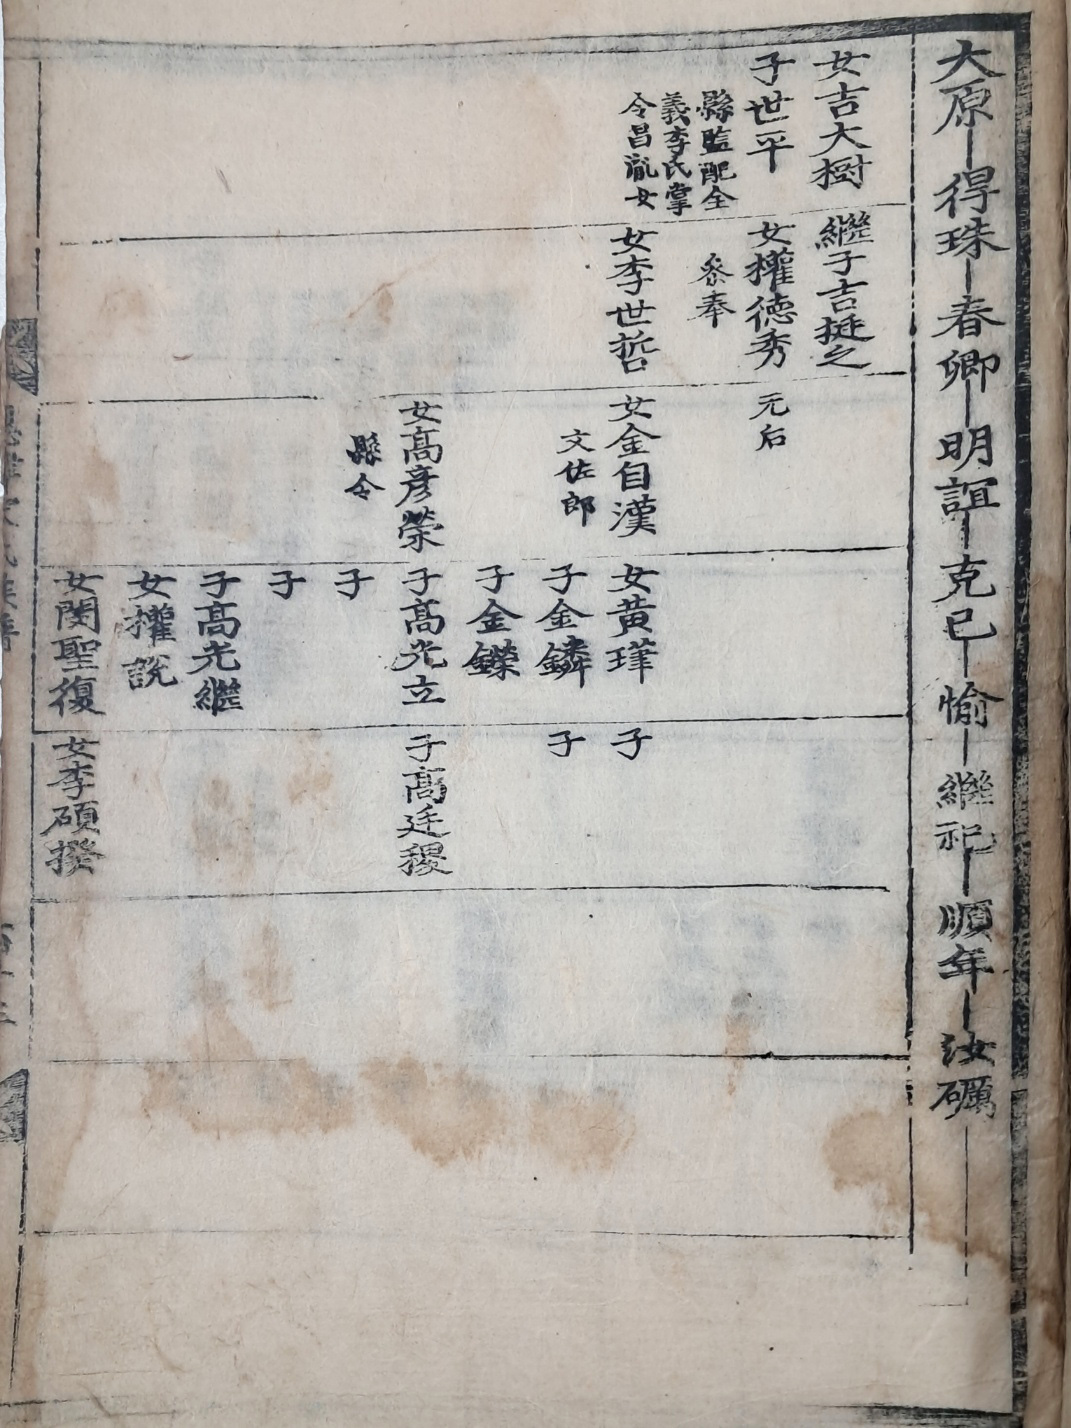 大原 得珠 春卿 明誼 克己 愉 繼祀 順年 汝礪
女吉大樹
子世平
縣監配全
義李氏掌
令昌胤女
繼子吉挺之
女權德秀
參奉
女李世哲
元后
女金自漢
文佐郎
女高彥榮
縣令
女黃瑾
子金鏻
子金鑅
子高光立
子
子
子高光繼
女權說
女閔聖復
子
子
子高廷稷
女李碩揆